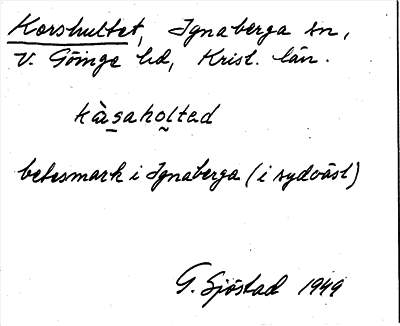 Korshultet, Ignaberga sn,
V. Göinge hd, Krist. län.
kàsaholtad
betesmark i Ignaberga (i sydväst)
G. Sjöstad 1949